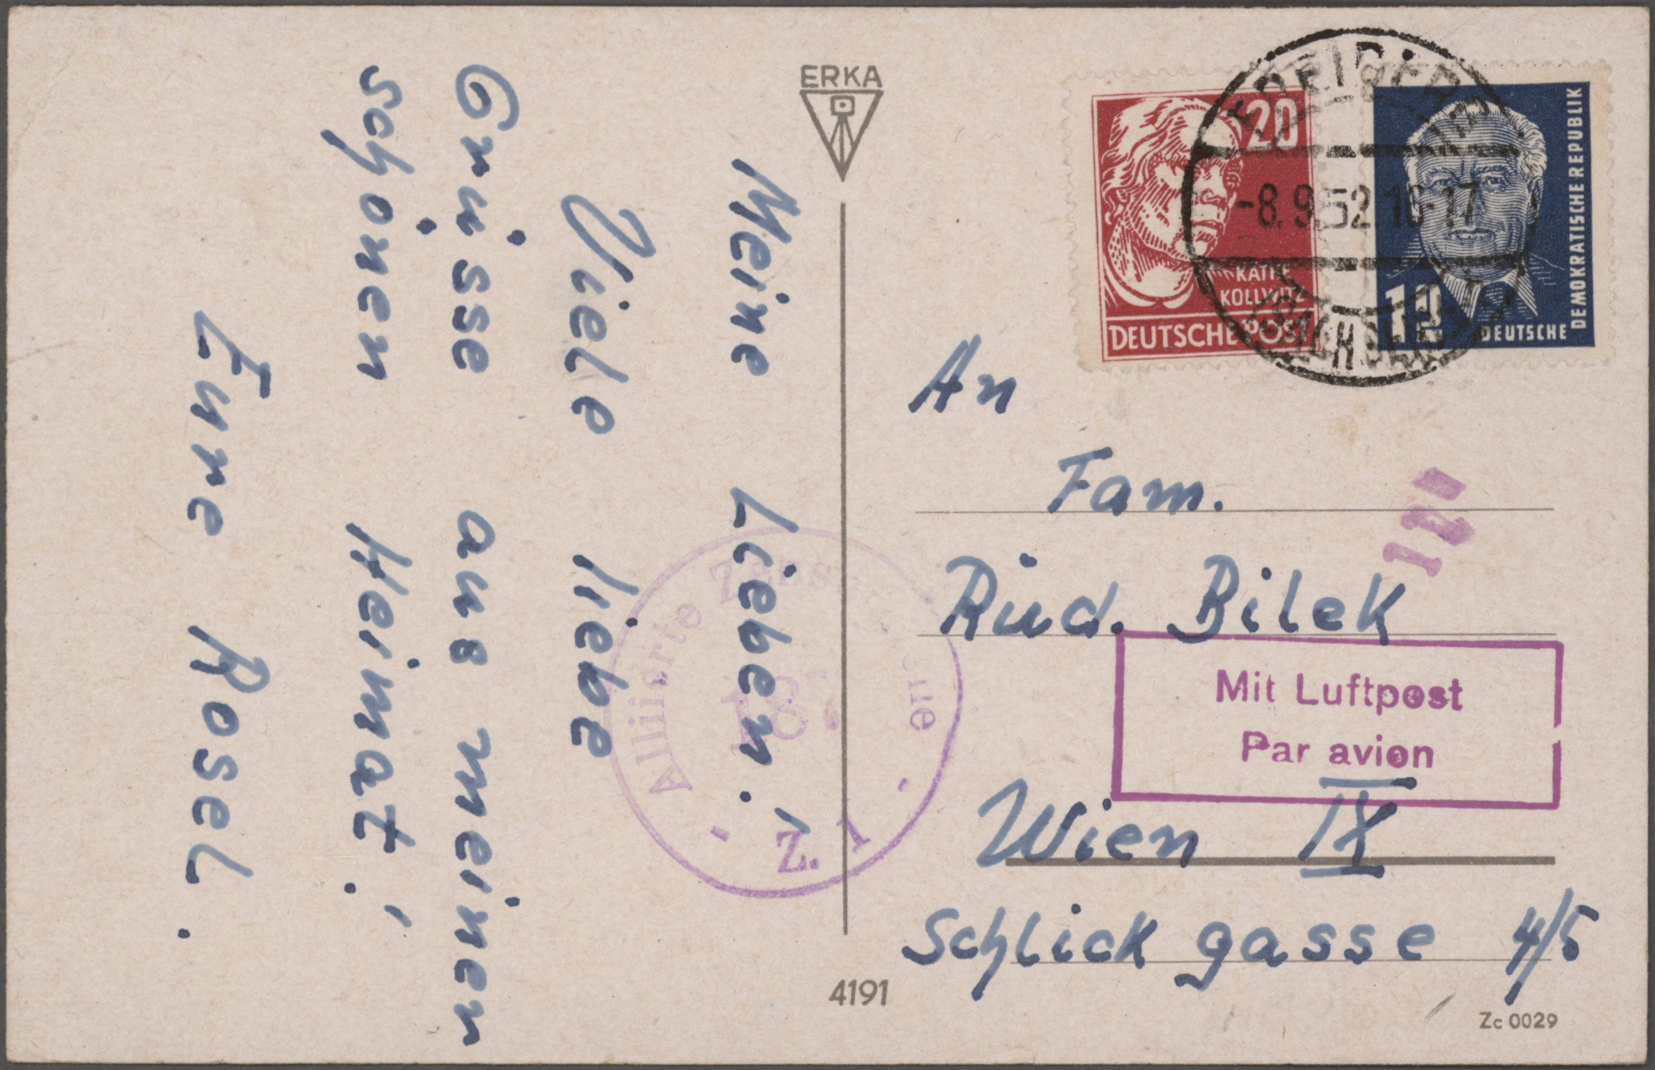 Meine Lieben!
Viele liebe
Grüsse aus meiner
schönen Heimat!
Eure Rosel.
ERKA
20
KÄTHE
KOLLWITZ
DEUTSCHE POST
12
DEUTSCHE
DEMOKRATISCHE REPUBLIK
-8.9.52 16-17
(SACHSEN)
An
Fam.
Rud. Bilek
Mit Luftpost
Par avion
Wien IX
Schlick gasse 4/5
Alliierte
187
Z. 1
4191
Zc 0029